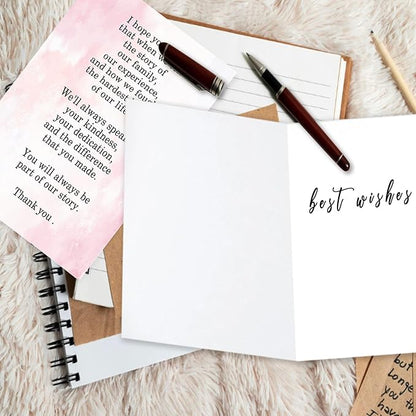 I hope yo
that when w
the story of
our family,
our experience,
and how we foun
the hardest
of our life
We'll always speak
your kindness,
your dedication,
and the difference
that you made.
You will always be
part of our story.
Thank you.
best wishes
but
Longe
you
have